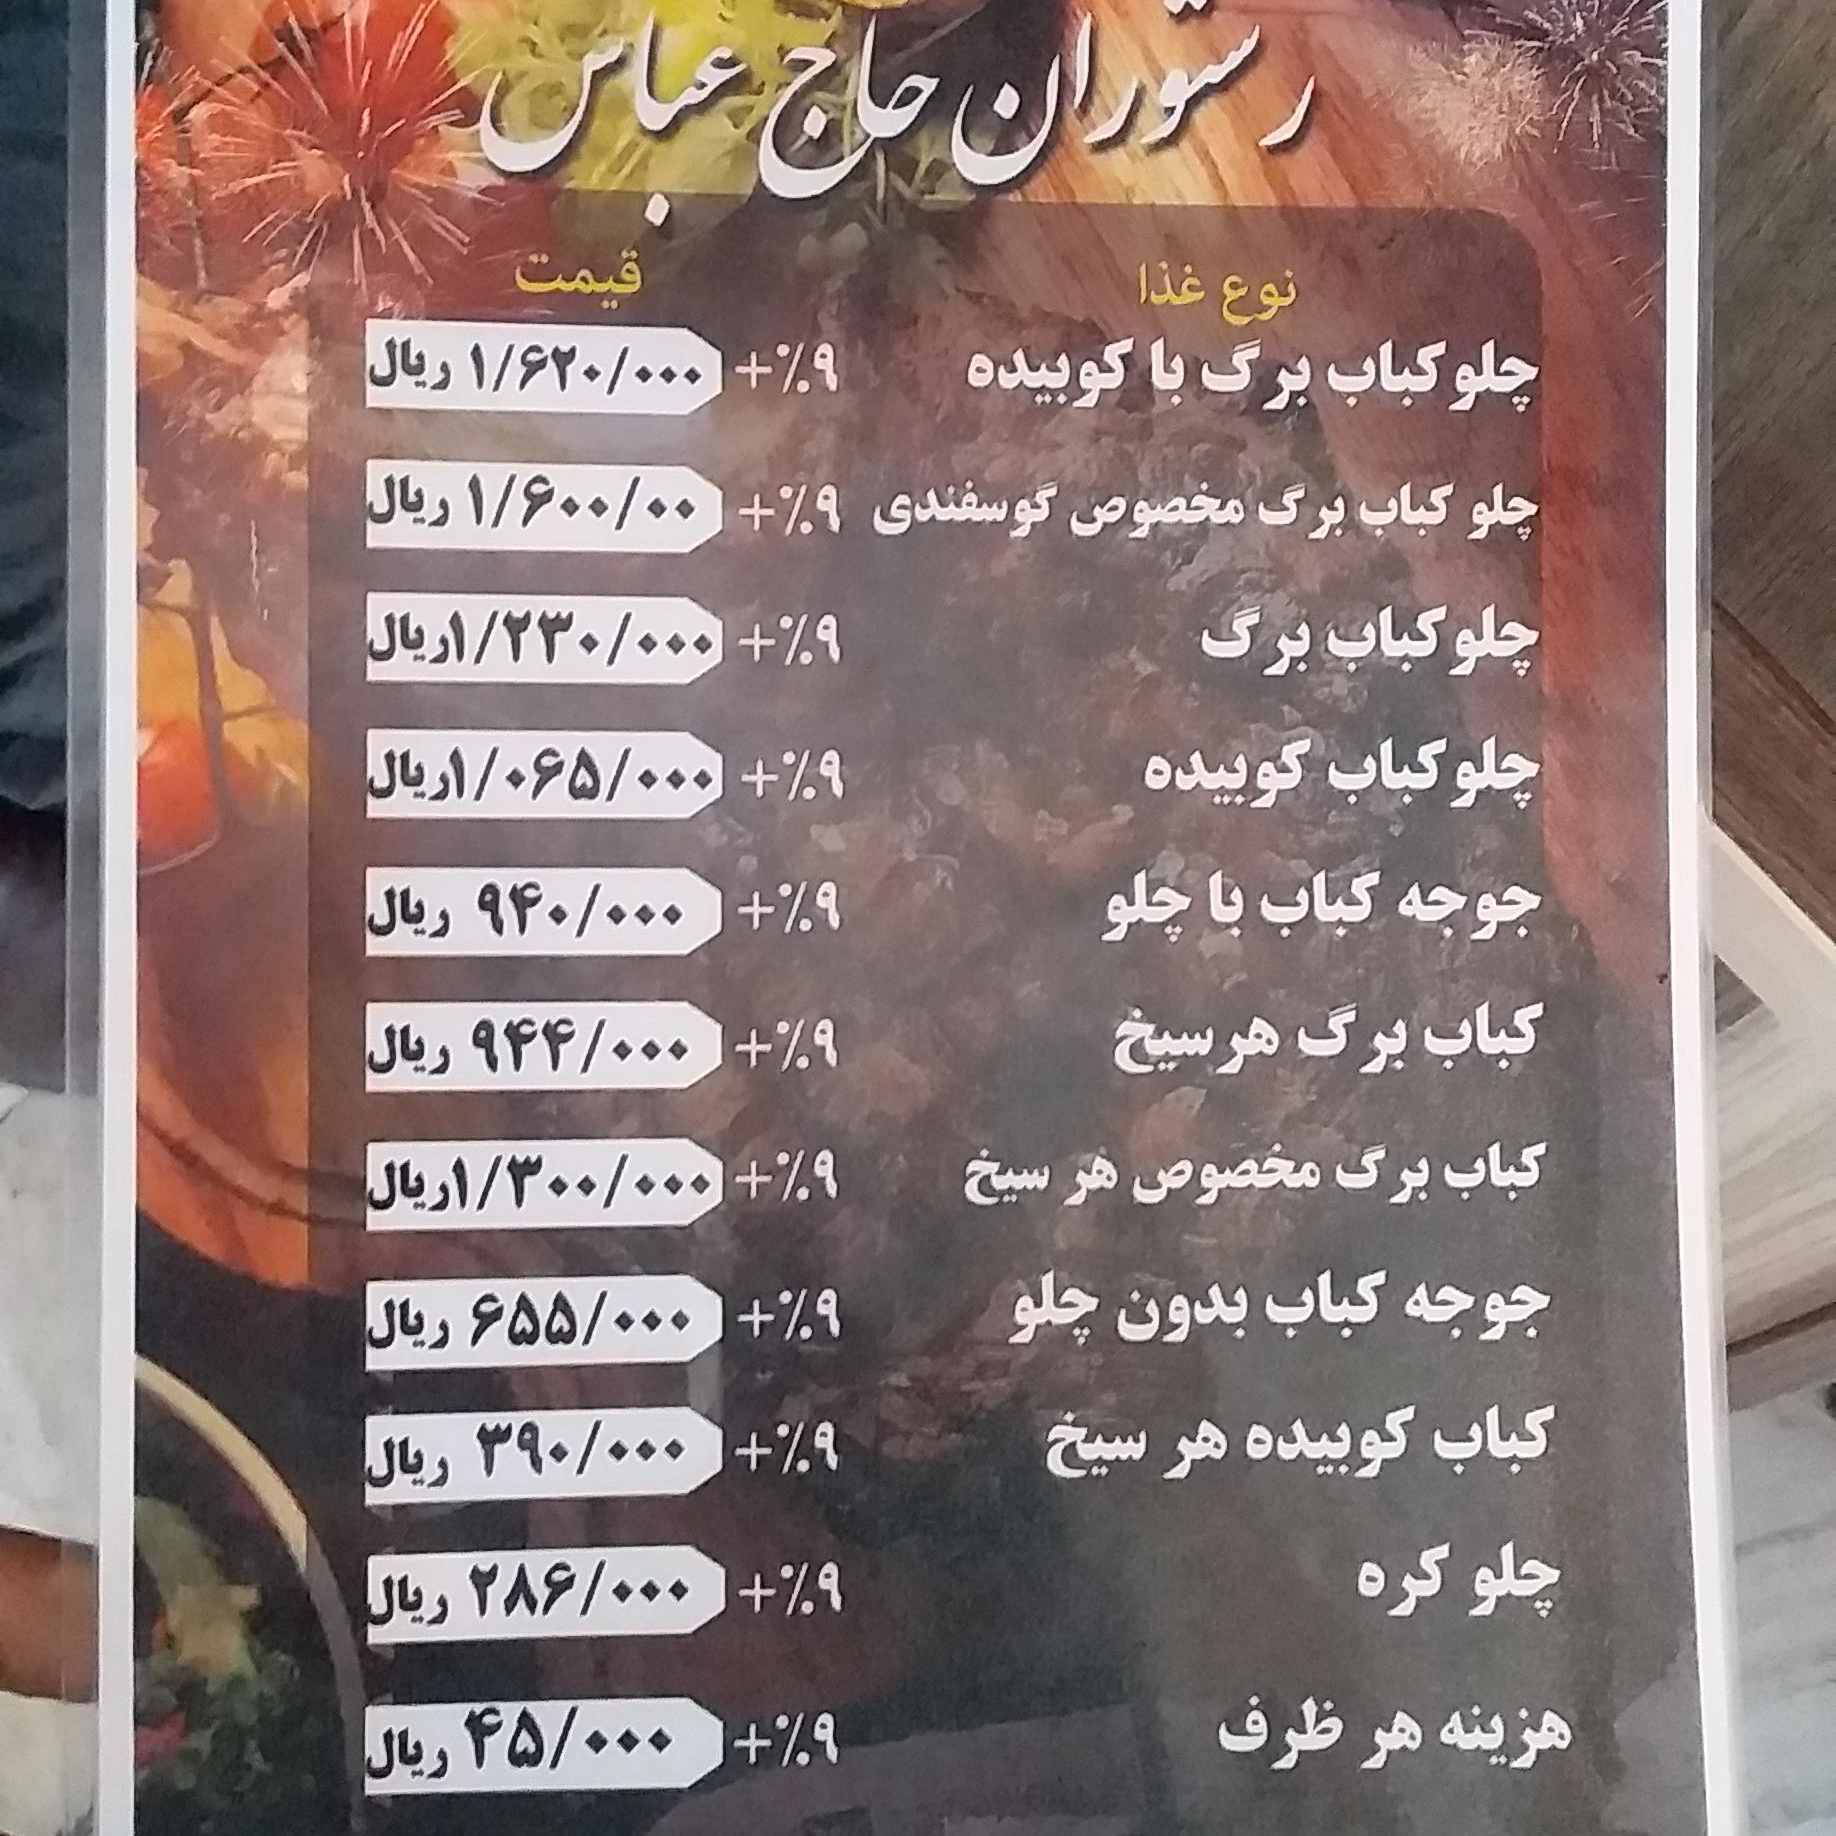 رستوران حاج عباس
نوع غذا قیمت
چلوکباب برگ با کوبیده ۹٪+ ۱/۶۲۰/۰۰۰ ریال
چلو کباب برگ مخصوص گوسفندی ۹٪+ ۱/۶۰۰/۰۰ ریال
چلوکباب برگ ۹٪+ ۱/۲۳۰/۰۰۰ریال
چلوکباب کوبیده ۹٪+ ۱/۰۶۵/۰۰۰ریال
جوجه کباب با چلو ۹٪+ ۹۴۰/۰۰۰ ریال
کباب برگ هرسیخ ۹٪+ ۹۴۴/۰۰۰ ریال
کباب برگ مخصوص هر سیخ ۹٪+ ۱/۳۰۰/۰۰۰ریال
جوجه کباب بدون چلو ۹٪+ ۶۵۵/۰۰۰ ریال
کباب کوبیده هر سیخ ۹٪+ ۳۹۰/۰۰۰ ریال
چلو کره ۹٪+ ۲۸۶/۰۰۰ ریال
هزینه هر ظرف ۹٪+ ۴۵/۰۰۰ ریال